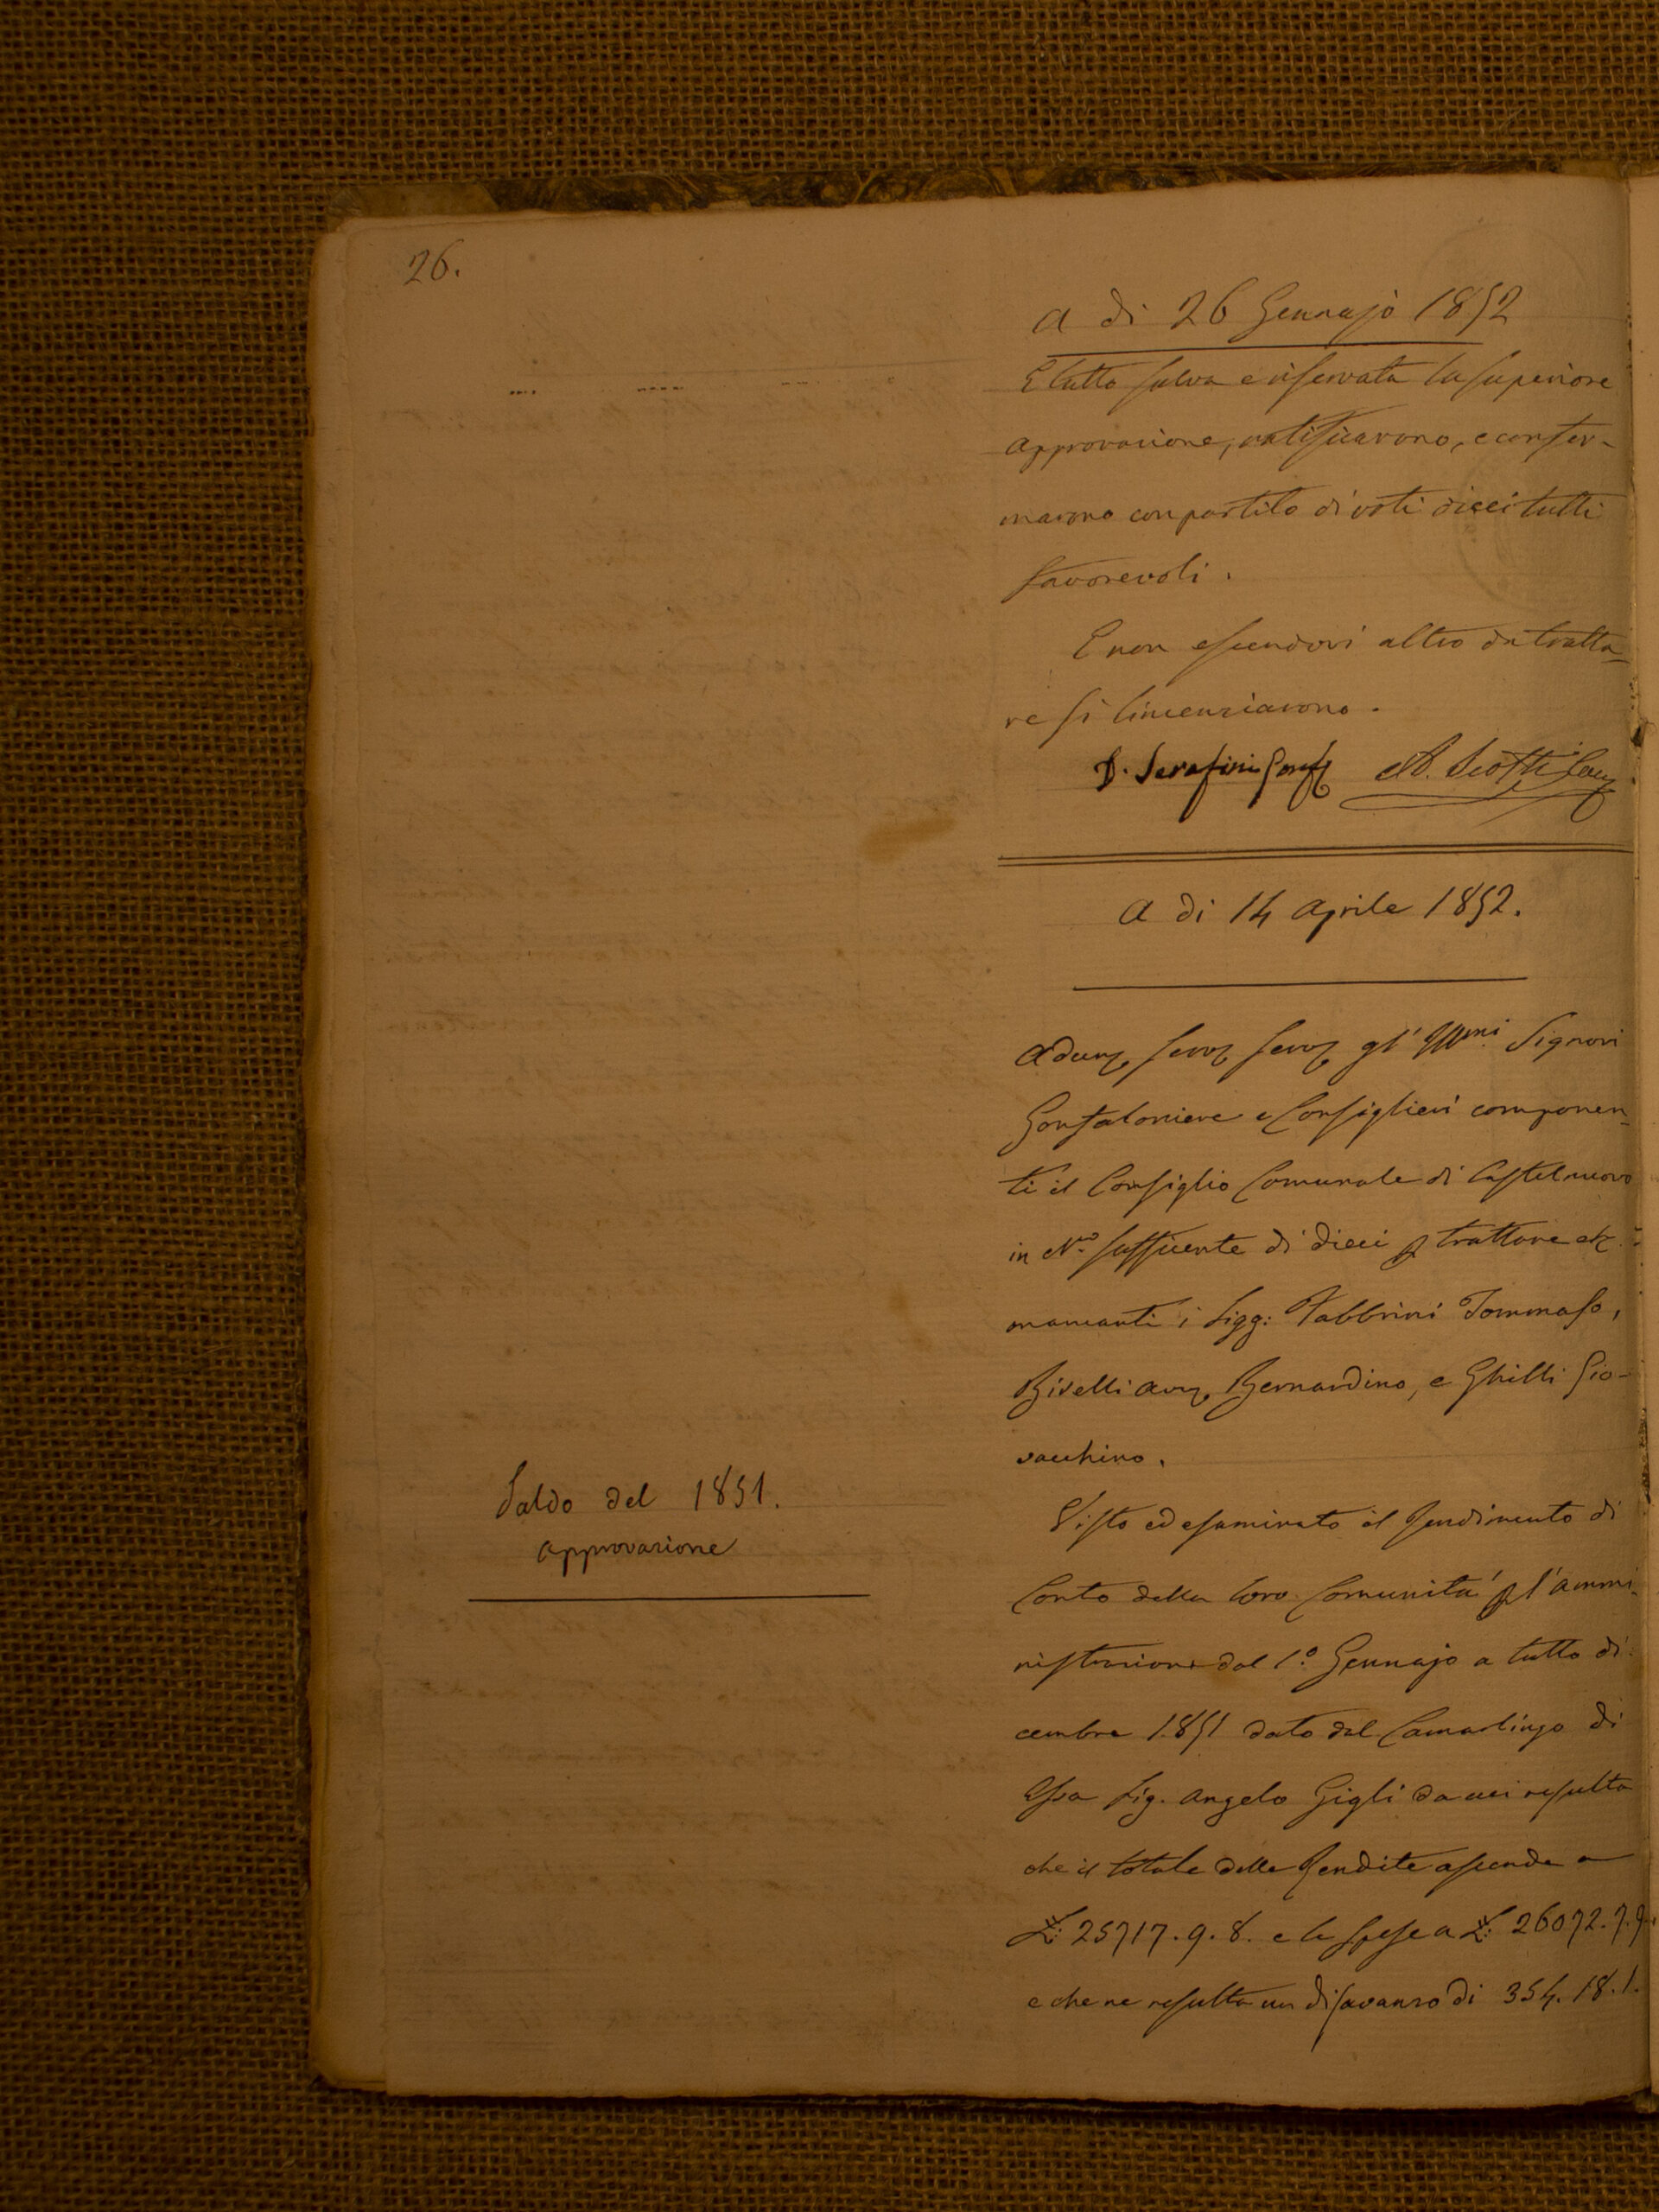 26.
A di 26 Gennajo 1852
E tutto salva e riservata la superiore
approvazione, ratificarono, e confer-
marono con partito di voti dieci tutti
favorevoli.
E non essendovi altro da tratta-
re si lincenziarono.
D. Serafini Gonf A. Scotti Canc
A di 14 Aprile 1852.
Adunz. serv. serv. gl' Illmi. Signori
Gonfaloniere e Consiglieri componen-
ti il Consiglio Comunale di Castelnuovo
in No. sufficente di dieci p trattare etc.
mancanti i Sigg: Fabbrini Tommaso,
Biselli Bernardino, e Ghilli Gio-
vacchino.
Saldo del 1851.
Approvazione
Visto ed esaminato il Rendimento di
Conto della loro Comunità p l'ammi-
nistrazione dal 1.o Gennajo a tutto di-
cembre 1851 dato dal Camarlingo di
Essa Sig. Angelo Gigli da cui resulta
che il totale delle Rendite ascende a
£: 25717. 9. 8. e le spese a £: 26072. 7. 9.
e che ne resulta un disavanzo di 354. 18. 1.